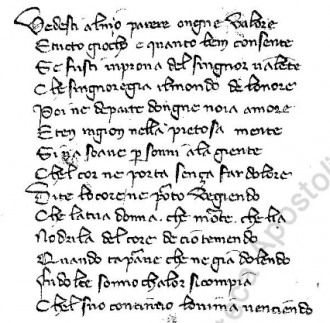 Vedesti almio parere ongne valore
Et tucto giocho e quanto bem consente
Se fusti improva del singnior valente
Che singnioregia il mondo de lonore
Poi ne departe dongne noia amore
E ten ragion nella pietosa mente
Si va soave p sonni ala giente
Chel cor ne porta senza far dolore
Di te lo core ne porto vegiendo
Che la tua donna che morte che
Nodrila del core de cio temendo
Quando tapāve che ne gia dolendo
Fu dolze sonno chalor si compia
Chel suo contrario lo venia vencendo
Apostoli